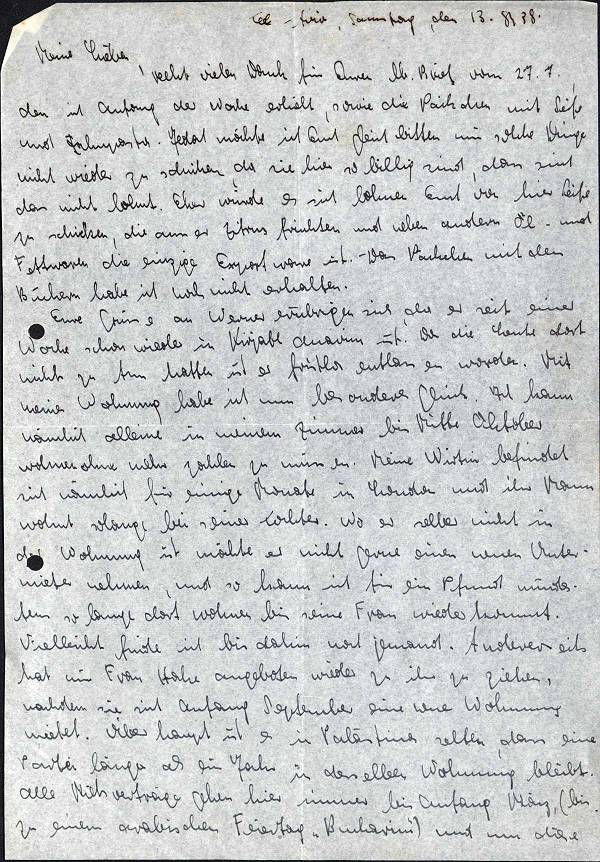 Tel-Aviv, Samstag, den 13. 38.
Meine Lieben,
recht vielen Dank für Euren lb. Brief vom 27.7.,
den ich Anfang der Woche erhielt, sowie die Päckchen mit Seife
und Zahnpasta. Jedoch möchte ich Euch bitten mir solche Dinge
nicht wieder zu schicken, da sie hier so billig sind, dass sich
das nicht lohnt. Eher würde es sich lohnen Euch von hier Seife
zu schicken, die ausser Zitrusfrüchten und neben anderen Öl- und
Fettwaren die einzige Exportware ist. - Das Päckchen mit den
Büchern habe ich noch nicht erhalten.
Eure Grüsse an Werner erübrigen sich, da er seit einer
Woche schon wieder in Kirjath Anavim ist. Da die Leute dort
nichts zu tun hatten ist er fristlos entlassen worden. Mit
meiner Wohnung habe ich nun besonderes Glück. Ich kann
nämlich alleine in meinem Zimmer bis Mitte Oktober
wohnen ohne mehr zahlen zu müssen. Meine Wirtin befindet
sich nämlich für einige Monate in London und ihr Mann
wohnt solange bei seiner Tochter. Wo er selber nicht in
der Wohnung ist möchte er nicht gerne einen neuen Unter-
mieter nehmen, und so kann ich für ein Pfund mindes-
tens so lange dort wohnen bis seine Frau wiederkommt.
Vielleicht finde ich bis dahin noch jemand. Andererseits
hat mir Frau angeboten wieder zu ihr zu ziehen,
nachdem sie sich Anfang September eine neue Wohnung
mietet. Überhaupt ist es in Palästina selten, dass eine
Partei länger als ein Jahr in derselben Wohnung bleibt.
Alle Mietsverträge gehen hier immer bis Anfang März, (bis
zu einem arabischen Feiertag) und um diese